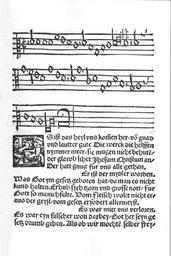 ES ist das heyl vns kommen her/võ gnad
vnd lautter gute. Die werck die helffen
nymmer mer/sie mugen nicht behut/
der glawb sihet Jhesum Christum an/
Der hatt gnug fur vns alle gethan/
Er ist der mydler worden.
Was Got ym gesetz geboten hat/do man es nicht
kund halten. Erhub sich zorn vnd grosse not/fur
Got so manichfalt. Vom fleisch wolt nicht er
aus der geyst/vom gesetz erfodert allermeyst.
Es war mit vns verloren.
Es war eyn falscher won darbey/Got het seyn ge
setz drumb geben. Als ob wir mochtẽ selber frey